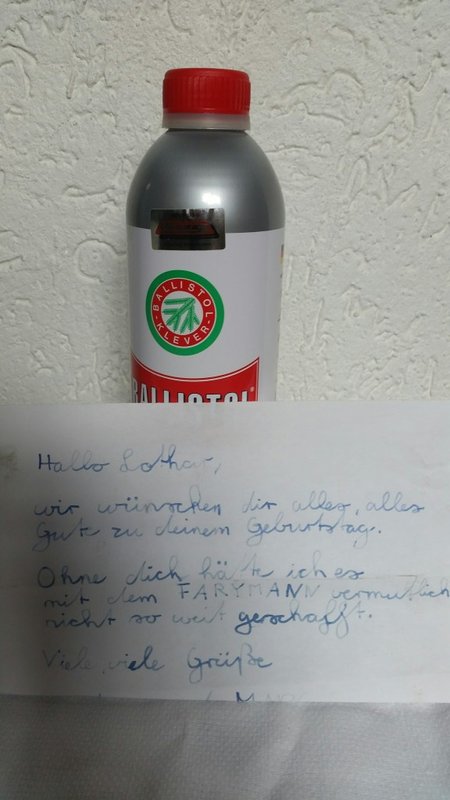 BALLISTOL
KLEVER
BALLISTOL
Hallo Lothar,
wir wünschen dir alles, alles
Gute zu deinem Geburtstag.
Ohne dich hätte ich es
mit dem FARYMANN vermutlich
nicht so weit geschafft.
Viele, viele Grüße